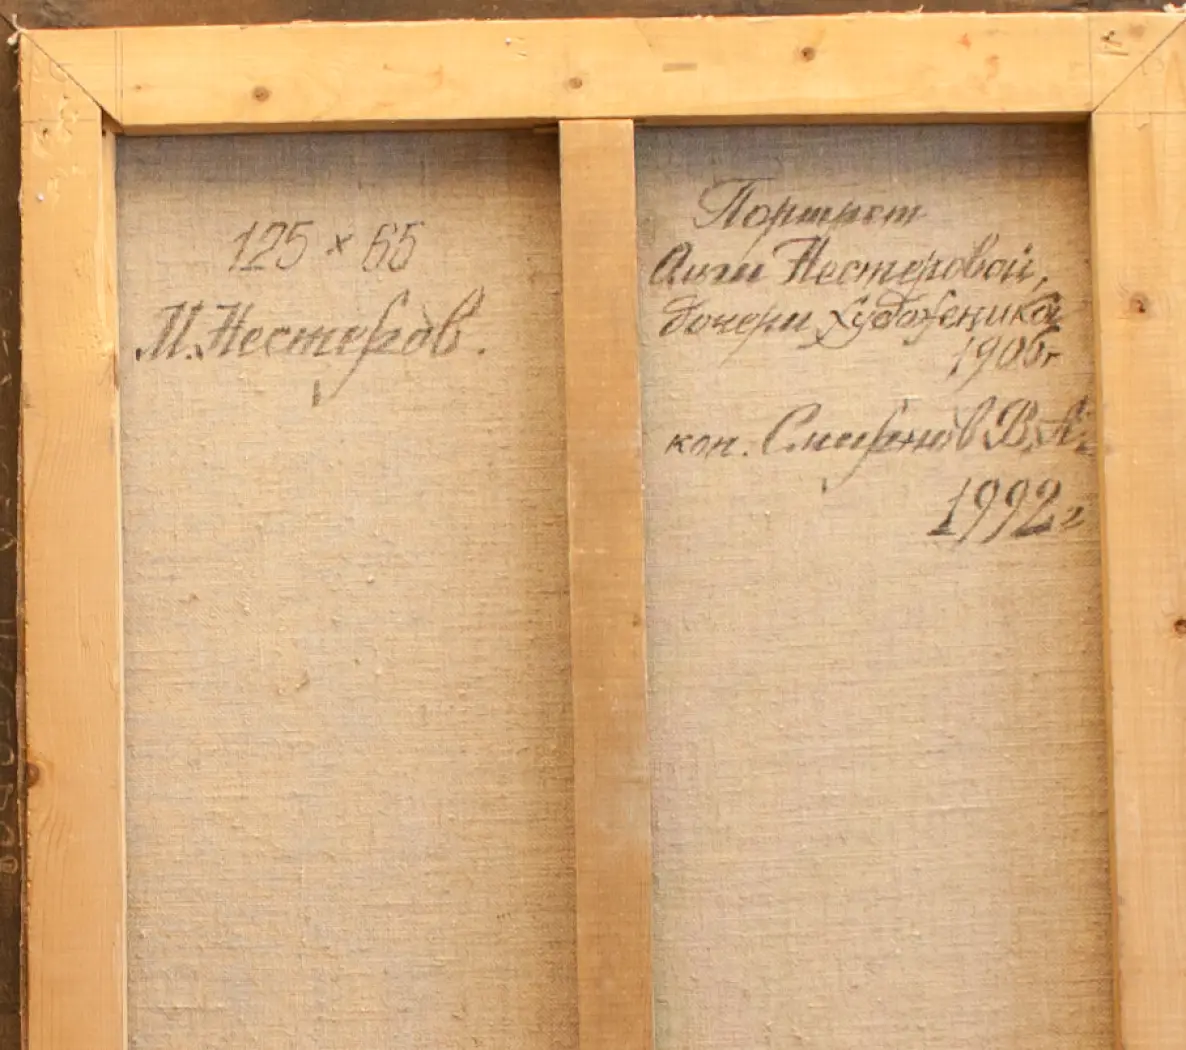 125 × 65
М. Нестеров.
Портрет
Ольги Нестеровой,
дочери художника
1906г
коп. Смирнов В.А.
1992г